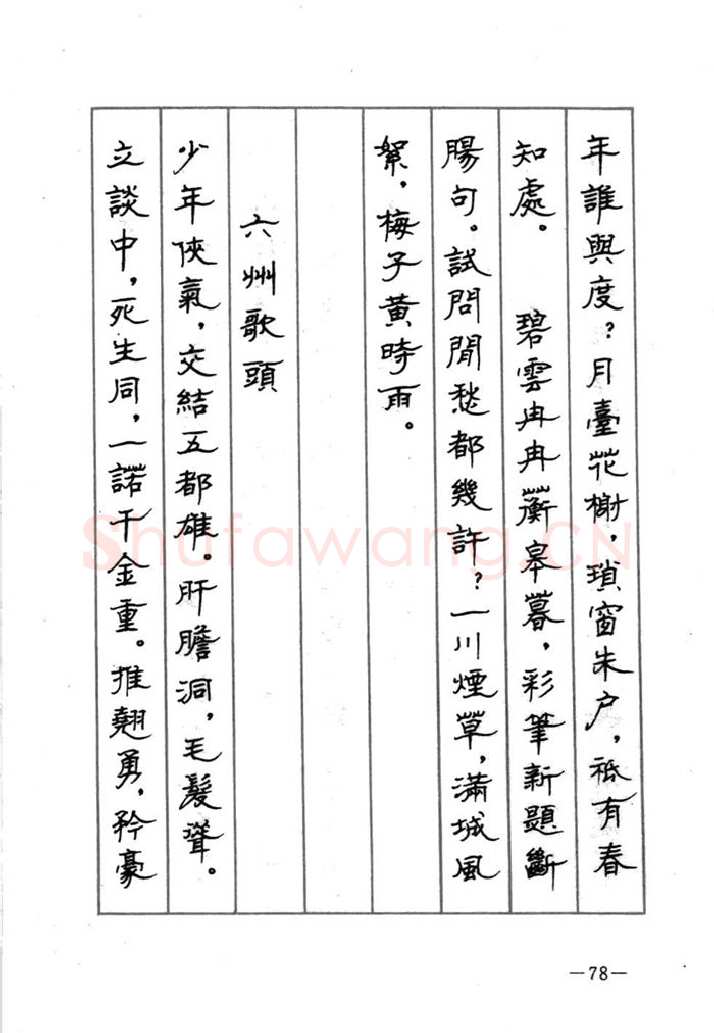 年誰與度？月臺花榭，瑣窗朱户，祗有春
知處。　碧雲冉冉蘅皋暮，彩筆新題斷
腸句。試問閒愁都幾許？一川煙草，滿城風
絮，梅子黃時雨。
六州歌頭
少年俠氣，交結五都雄。肝膽洞，毛髮聳。
立談中，死生同，一諾千金重。推翹勇，矜豪
Shufawang.CN
—78—